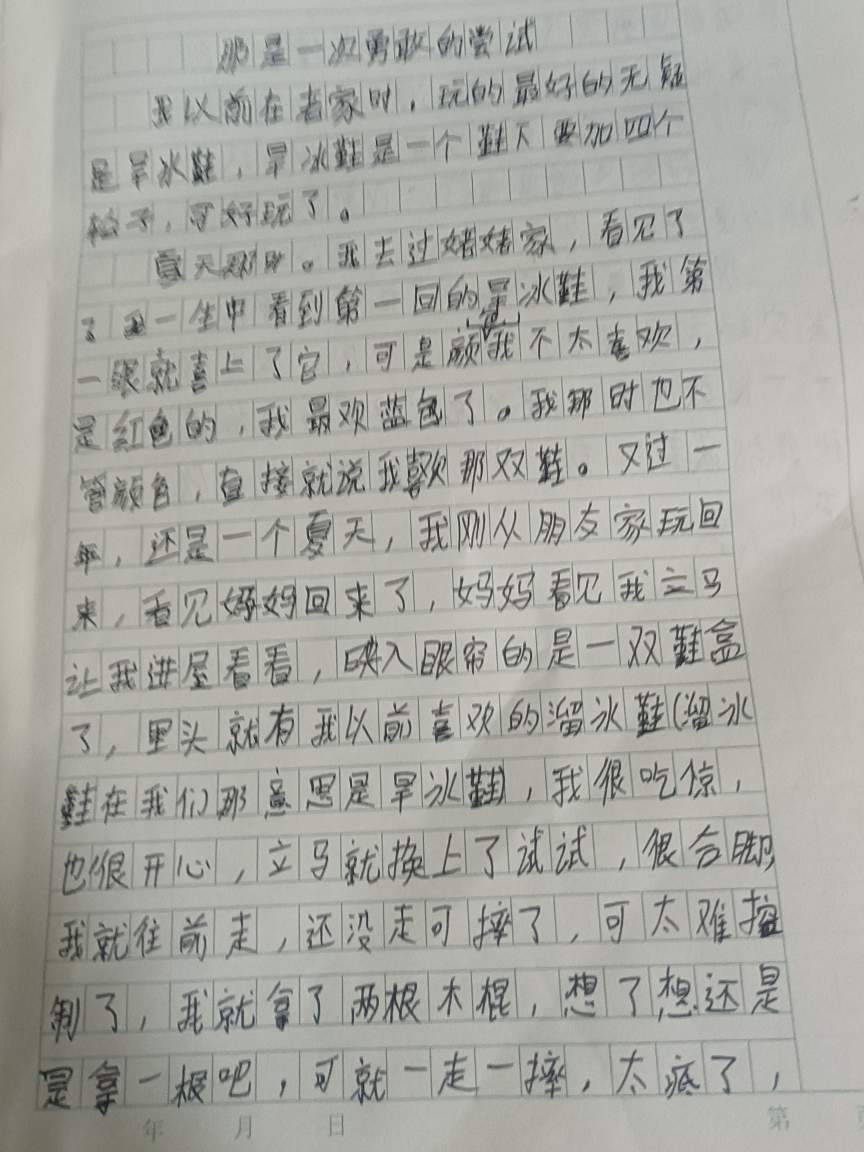 那是一次勇敢的尝试
我以前在老家时，玩的最好的无疑
是旱冰鞋，旱冰鞋是一个鞋下要加四个
轮子，可好玩了。
夏天那时。我去过姥姥家，看见了
了我一生中看到第一回的旱冰鞋，我第
一眼就喜上了它，可是颜色我不太喜欢，
是红色的，我最欢蓝色了。我那时也不
管颜色，直接就说我喜欢那双鞋。又过一
年，还是一个夏天，我刚从朋友家玩回
来，看见妈妈回来了，妈妈看见我立马
让我进屋看看，映入眼帘的是一双鞋盒
了，里头就有我以前喜欢的溜冰鞋(溜冰
鞋在我们那意思是旱冰鞋)，我很吃惊，
也很开心，立马就换上了试试，很合脚，
我就往前走，还没走可摔了，可太难控
制了，我就拿了两根木棍，想了想还是
是拿一根吧，可就一走一摔，太疼了，
年 月 日
第